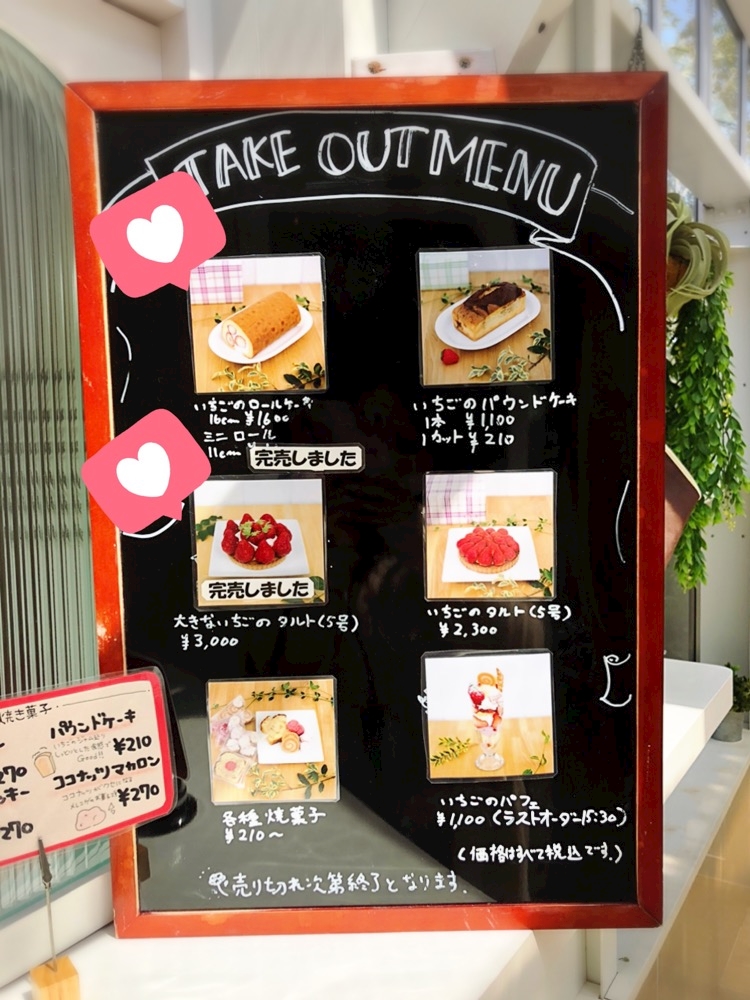 TAKE OUT MENU
いちごのロールケーキ
16cm ¥1600
ミニロール
11cm
完売しました
いちごのパウンドケーキ
1本 ¥1,100
1カット ¥210
完売しました
大きないちごのタルト(5号)
¥3,000
いちごのタルト(5号)
¥2,300
各種焼菓子
¥210～
いちごのパフェ
¥1,100 (ラストオーダー15:30)
(価格はすべて税込です。)
売り切れ次第終了となります。
焼き菓子
パウンドケーキ
Good!!
¥210
ココナッツマカロン
¥270
270
270